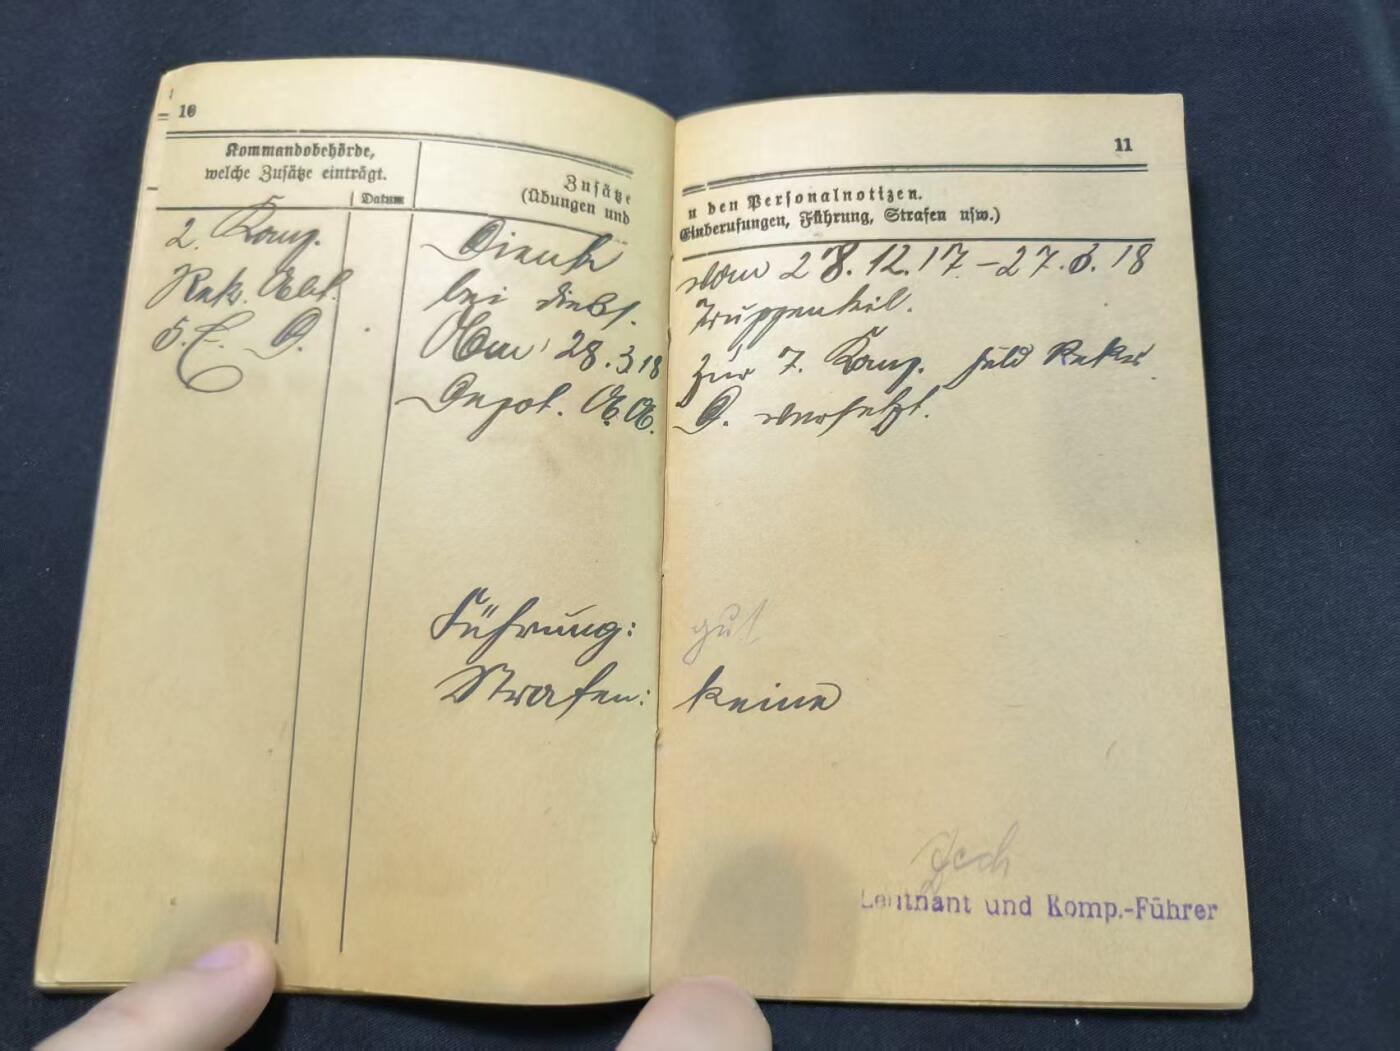 10
Kommandobehörde,
welche Zusätze einträgt.
Datum
Zusätze
(Übungen und
2. Komp.
Rek. Abt.
Dienst
bei diess.
Am 28.3.18
Depot.
Führung:
Strafen:
11
n den Personalnotizen.
Einberufungen, Führung, Strafen usw.)
vom 28.12.17.-27.3.18
Truppenteil.
zur 7. Komp. Feld Rekr.
D. versetzt.
gut
keine
Leutnant und Komp.-Führer